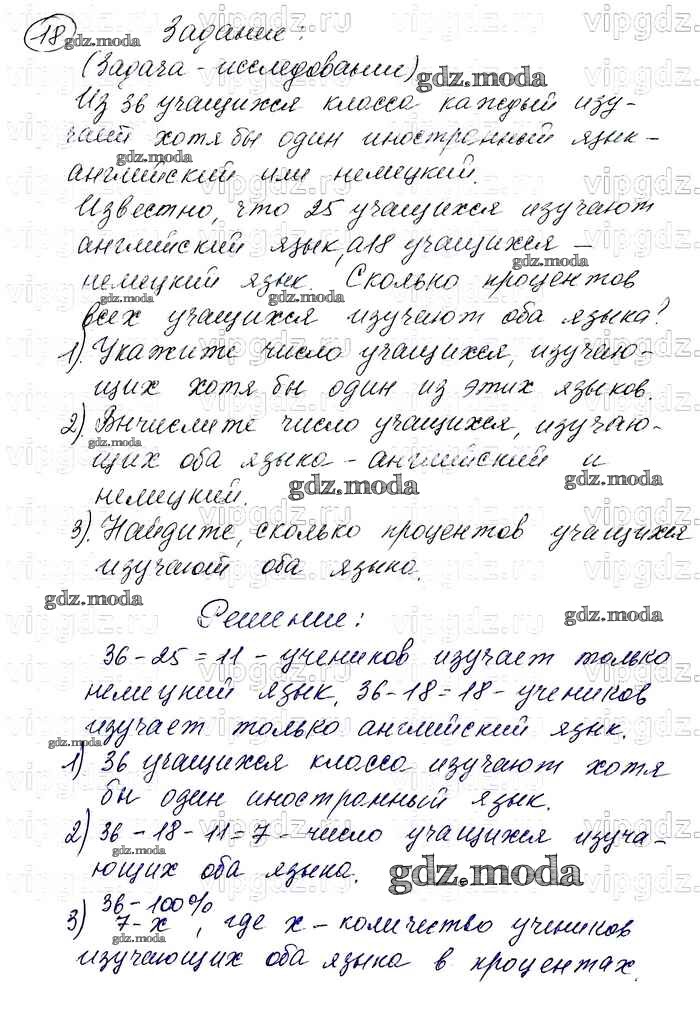 18 Задание:
(Задача - исследование)
Из 36 учащихся класса каждый изу-
чает хотя бы один иностранный язык -
английский или немецкий.
Известно, что 25 учащихся изучают
английский язык, а 18 учащихся -
немецкий язык. Сколько процентов
всех учащихся изучают оба языка?
1). Укажите число учащихся, изучаю-
щих хотя бы один из этих языков.
2). Вычислите число учащихся, изучаю-
щих оба языка - английский и
немецкий.
3). Найдите, сколько процентов учащихся
изучают оба языка.
Решение:
36-25=11 - учеников изучает только
немецкий язык, 36-18=18 - учеников
изучает только английский язык.
1) 36 учащихся класса изучают хотя
бы один иностранный язык.
2) 36-18-11=7 - число учащихся изуча-
ющих оба языка.
3) 36-100%
7-x, где x - количество учеников
изучающих оба языка в процентах.
gdz.moda
vipgdz.ru